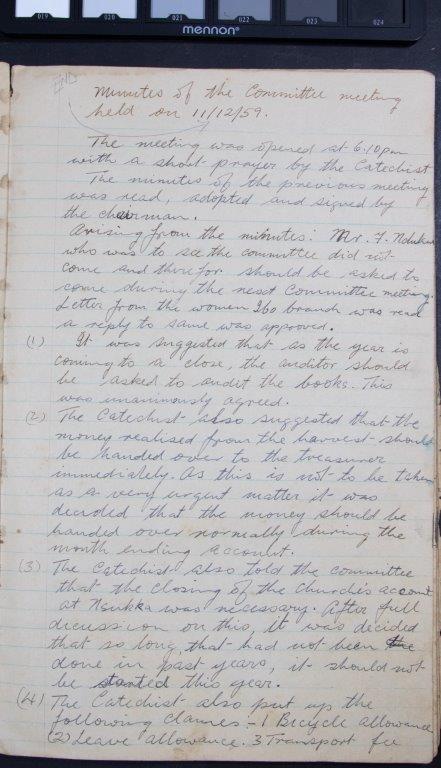 019 020 021 022 023 024
mennon
END
Minutes of the Committee meeting
held on 11/12/59.
The meeting was opened at 6.10pm
with a short prayer by the Catechist
The minutes of the previous meeting
was read, adopted and signed by
the chairman.
Arising from the minutes: Mr. F. Nduka
who was to see the committee did not
come and therefor should be asked to
come during the next Committee meeting.
Letter from the women Ibo branch was read
a reply to same was approved.
(1) It was suggested that as the year is
coming to a close, the auditor should
be asked to audit the books. This
was unanimously agreed.
(2) The Catechist also suggested that the
money realised from the harvest should
be handed over to the treasurer
immediately. As this is not to be taken
as a very urgent matter it was
decided that the money should be
handed over normally during the
month ending account.
(3) The Catechist also told the committee
that the closing of the Church's account
at Nsukka was necessary. After full
dicussion on this, it was decided
that so long that had not been the
done in past years, it should not
be started this year.
(4) The Catechist also put up the
following claims:- 1 Bicycle allowance
(2) Leave allowance. 3 Transport fee